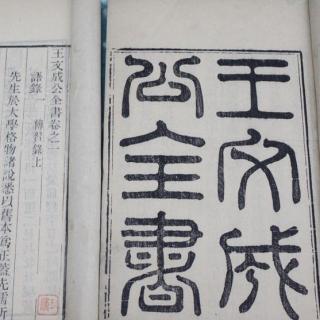 王文成
公全書
王文成公全書卷之
語錄一 傳習錄上
先生於大學格物諸說悉以舊本爲正蓋先儒所